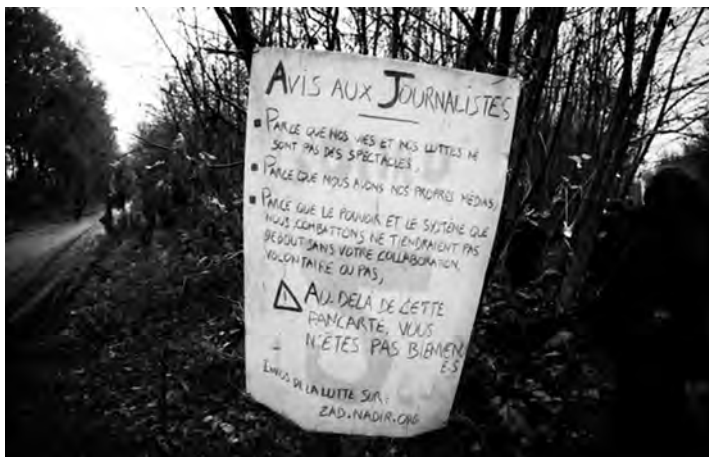 AVIS AUX JOURNALISTES
PARCE QUE NOS VIES ET NOS LUTTES NE
SONT PAS DES SPECTACLES,
PARCE QUE NOUS AVONS NOS PROPRES MÉDIAS,
PARCE QUE LE POUVOIR ET LE SYSTÈME QUE
NOUS COMBATTONS NE TIENDRAIENT PAS
DEBOUT SANS VOTRE COLLABORATION,
VOLONTAIRE OU PAS,
AU-DELÀ DE CETTE
PANCARTE, VOUS
N'ÊTES PAS BIENVEN
E.S
DE LA LUTTE SUR:
ZAD.NADIR.ORG